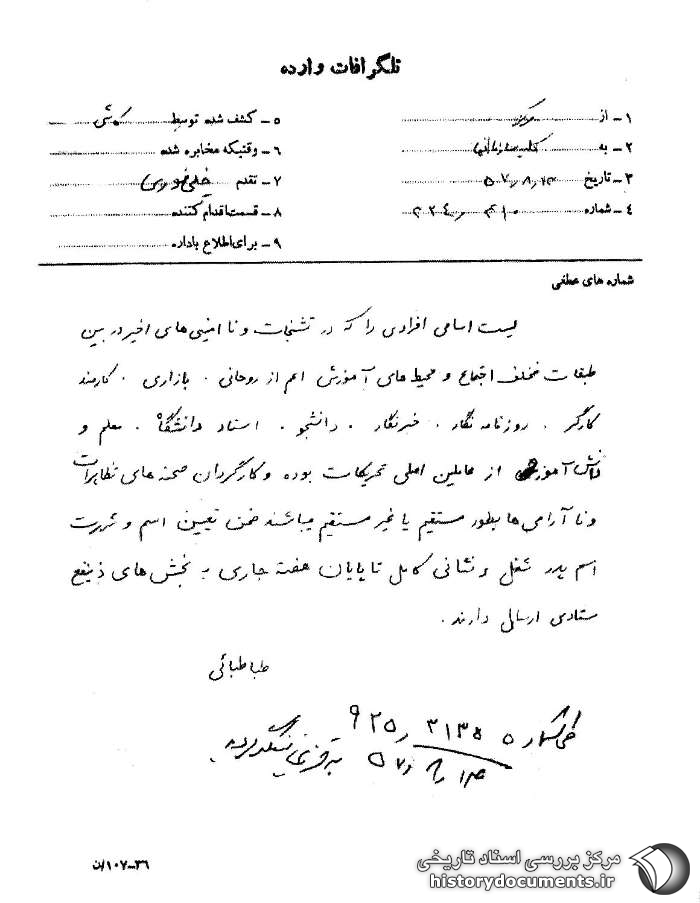 تلگرافات وارده
۱ـ از مرکز
۲ـ به کلیه سازمانها
۳ـ تاریخ ۵۷٫۸٫۱۳
۴ـ شماره
۵ـ کشف شده توسط
۶ـ وقتیکه مخابره شده
۷ـ تقدم خیلی فوری
۸ـ قسمت اقدام کننده
۹ـ برای اطلاع باداره
شماره های عطفی
لیست اسامی افرادی را که در تشنجات و نا امنی های اخیر در بین
طبقات مختلف اجتماع و محیط های آموزش اعم از روحانی . بازاری . کارمند
کارگر . روزنامه نگار . خبرنگار . دانشجو . استاد دانشگاه . معلم و
دانش آموز از عاملین اصلی تحریکات بوده و کارگردان صحنه های تظاهرات
و نا آرامی ها بطور مستقیم یا غیر مستقیم میباشند ضمن تعیین اسم و شهرت
اسم پدر شغل و نشانی کامل تا پایان هفته جاری به بخش های ذینفع
ستادی ارسال دارند .
طباطبائی
۹۲۵٫۳۱۳۵
۳۶-۱۰۷/ن
مرکز بررسی اسناد تاریخی
historydocuments.ir